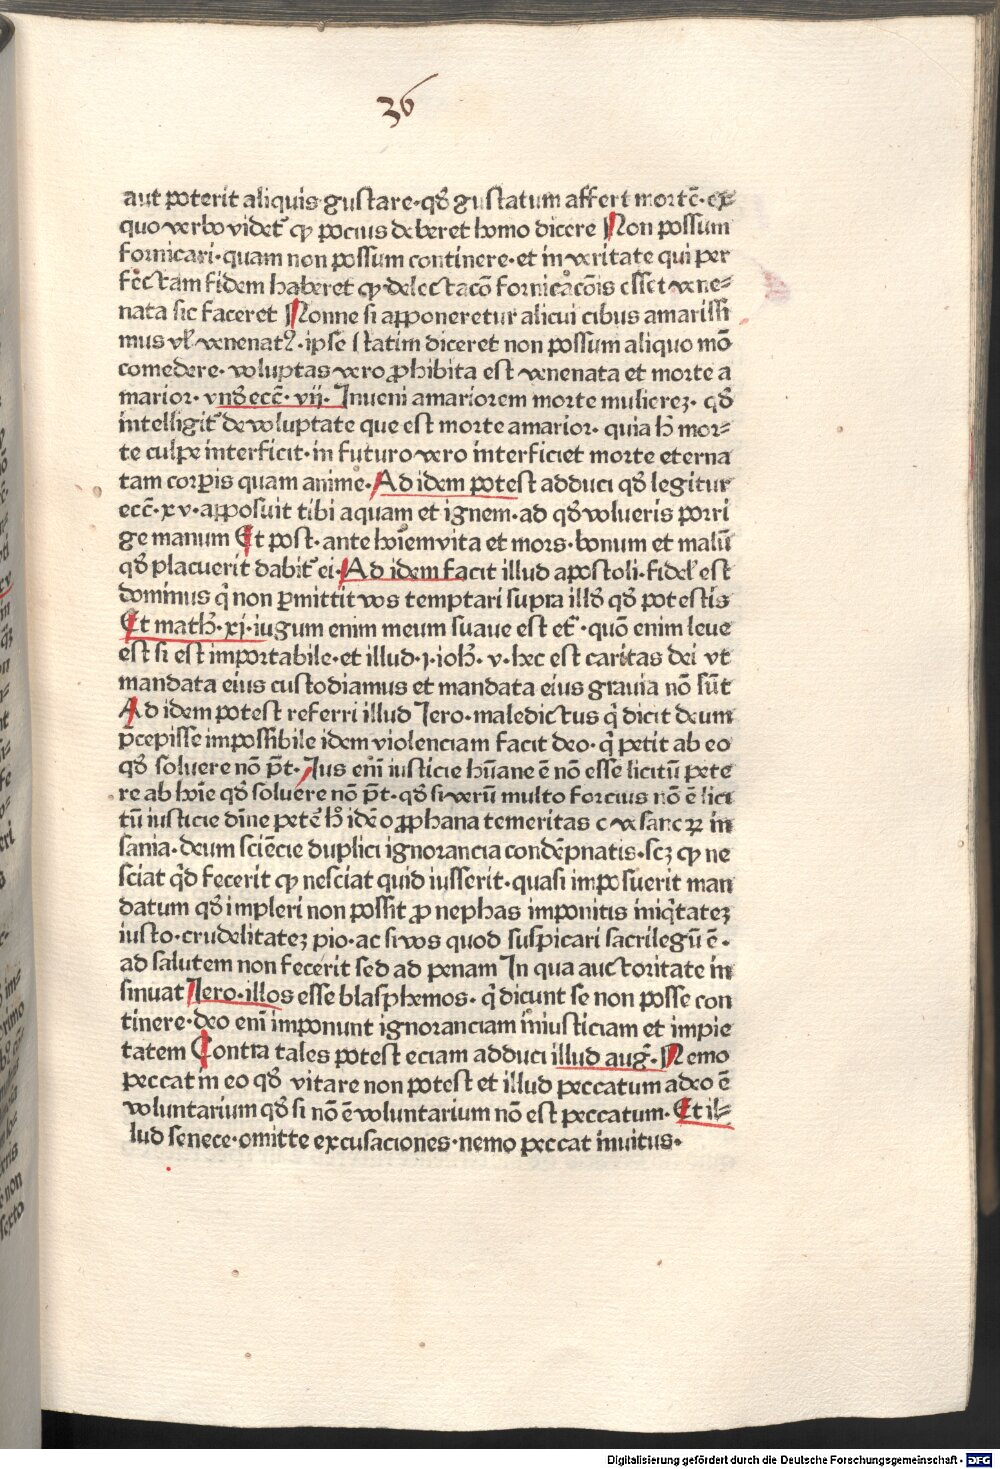 36
aut poterit aliquis gustare·qd̛ gustatum affert mortē·ex
quo verbo videt̉ ꝙ pocius deberet homo dicere Non possum
fornicari·quam non possum continere·et in veritate qui per
fectam fidem haberet ꝙ delectacō fornicacōis esset vene⸗
nata sic faceret Nonne si apponeretur alicui cibus amarissi
mus vl̛ venenatꝰ·ipse statim diceret non possum aliquo mō
comedere·voluptas vero ꝓhibita est venenata et morte a
marior·vnd̛ ecc̄·vij·Inueni amariorem morte mulierēꝫ·qd̛
intelligit̉ de voluptate que est morte amarior·quia h̛ mor⸗
te culpe interficit·in futuro vero interficiet morte eterna
tam corꝑis quam anime·Ad idem potest adduci qd̛ legitur
ecc̄·xv·apposuit tibi aquam et ignem·ad qd̛ volueris porri
ge manum Et post·ante hoīem vita et mors·bonum et malū
qd̛ placuerit dabit̉ ei·Ad idem facit illud apostoli·fidel̛ est
dominus q̄ non ꝑmittit vos temptari supra illd̛ qd̛ potestis
Et math̛·xj·iugum enim meum suaue est et̉·quō enim leue
est si est importabile·et illud·j·ioh̛·v·hec est caritas dei vt
mandata eius custodiamus et mandata eius grauia nō sūt
Ad idem potest referri illud Jero·maledictus q̄ dicit deum
p̄cepisse impossibile idem violenciam facit deo·q̄ petit ab eo
qd̛ soluere nō p̄t·Jus enī iusticie hūane ē nō esse licitū pete
re ab hoīe qd̛ soluere nō p̄t·qd̛ si verū multo forcius nō ē lici
tū iusticie dīne petē h̛ idē o ꝓphana temeritas c ve sancꝝ in
sania·deum sciēcie duplici ignorancia condēpnatis·scꝫ ꝙ ne
sciat qd̄ fecerit ꝙ nesciat quid iusserit·quasi imposuerit man
datum qd̛ impleri non possit ꝓ nephas imponitis iniq̄tateꝫ
iusto·crudelitateꝫ pio·ac si vos quod suspicari sacrilegū ē·
ad salutem non fecerit sed ad penam In qua auctoritate in
sinuat Jero·illos esse blasphemos·q̄ dicunt se non posse con
tinere·deo enī imponunt ignoranciam īniusticiam et impie
tatem Contra tales potest eciam adduci illud aug̛·Nemo
peccat in eo qd̛ vitare non potest et illud peccatum adeo ē
voluntarium qd̛ si nō ē voluntarium nō est peccatum·Et il⸗
lud senece·omitte excusaciones·nemo peccat inuitus·
Digitalisierung gefördert durch die Deutsche Forschungsgemeinschaft - DFG